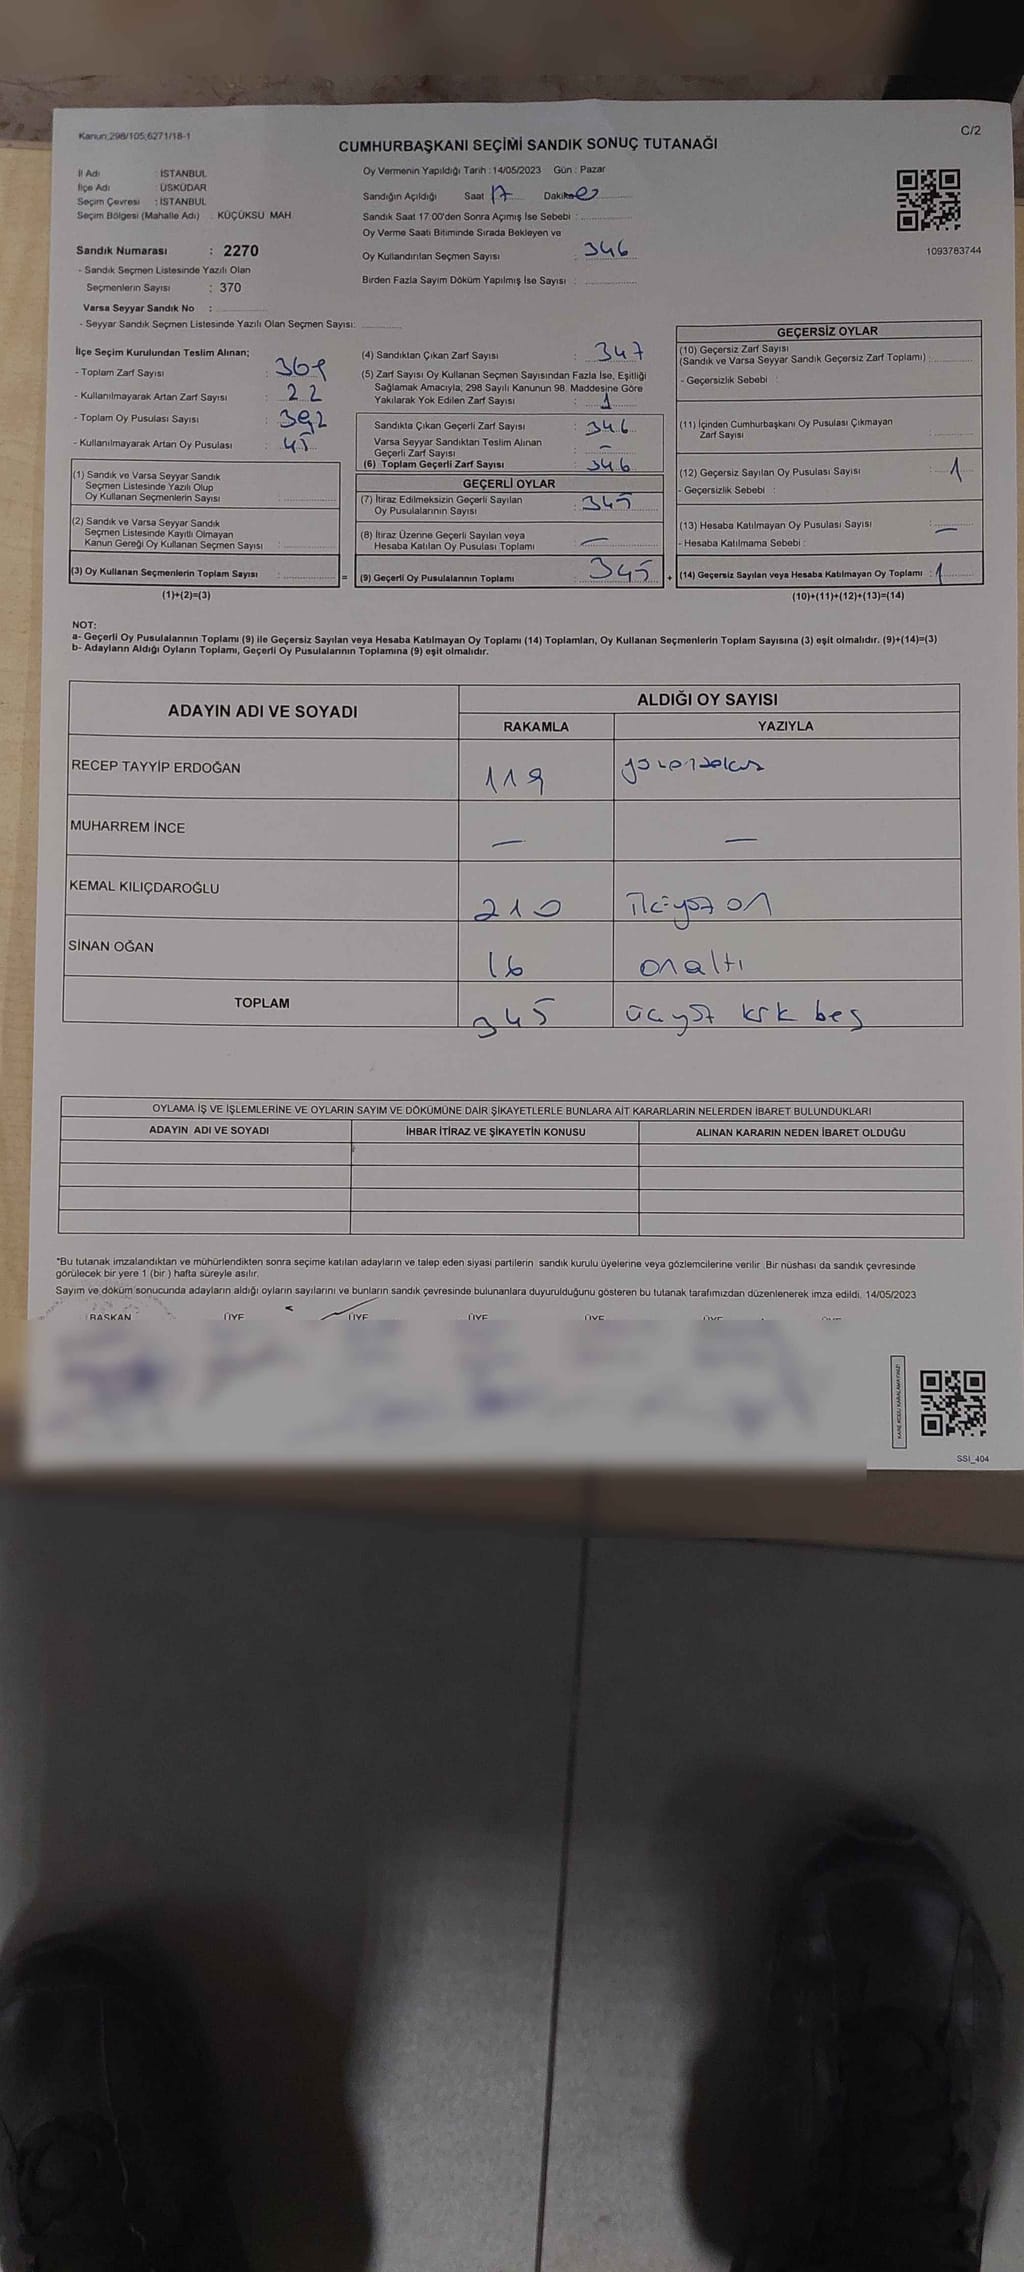 Kanun;298/105;6271/18-1
C/2
CUMHURBAŞKANI SEÇİMİ SANDIK SONUÇ TUTANAĞI
İl Adı : İSTANBUL
İlçe Adı : ÜSKÜDAR
Seçim Çevresi : İSTANBUL
Seçim Bölgesi (Mahalle Adı) : KÜÇÜKSU MAH
Oy Vermenin Yapıldığı Tarih : 14/05/2023 Gün : Pazar
Sandığın Açıldığı Saat 17 Dakika
Sandık Saat 17:00'den Sonra Açımış İse Sebebi :
Oy Verme Saati Bitiminde Sırada Bekleyen ve
Oy Kullandırılan Seçmen Sayısı : 346
Birden Fazla Sayım Döküm Yapılmış İse Sayısı :
1093783744
Sandık Numarası : 2270
- Sandık Seçmen Listesinde Yazılı Olan
Seçmenlerin Sayısı : 370
Varsa Seyyar Sandık No :
- Seyyar Sandık Seçmen Listesinde Yazılı Olan Seçmen Sayısı:
İlçe Seçim Kurulundan Teslim Alınan;
- Toplam Zarf Sayısı : 369
- Kullanılmayarak Artan Zarf Sayısı : 22
- Toplam Oy Pusulası Sayısı : 392
- Kullanılmayarak Artan Oy Pusulası : 45
(1) Sandık ve Varsa Seyyar Sandık
Seçmen Listesinde Yazılı Olup
Oy Kullanan Seçmenlerin Sayısı :
(2) Sandık ve Varsa Seyyar Sandık
Seçmen Listesinde Kayıtlı Olmayan
Kanun Gereği Oy Kullanan Seçmen Sayısı :
(3) Oy Kullanan Seçmenlerin Toplam Sayısı :
(1)+(2)=(3)
=
(4) Sandıktan Çıkan Zarf Sayısı : 347
(5) Zarf Sayısı Oy Kullanan Seçmen Sayısından Fazla İse, Eşitliği
Sağlamak Amacıyla, 298 Sayılı Kanunun 98. Maddesine Göre
Yakılarak Yok Edilen Zarf Sayısı : 1
Sandıkta Çıkan Geçerli Zarf Sayısı : 346
Varsa Seyyar Sandıktan Teslim Alınan
Geçerli Zarf Sayısı : –
(6) Toplam Geçerli Zarf Sayısı : 346
GEÇERLİ OYLAR
(7) İtiraz Edilmeksizin Geçerli Sayılan
Oy Pusulalarının Sayısı : 345
(8) İtiraz Üzerine Geçerli Sayılan veya
Hesaba Katılan Oy Pusulası Toplamı : –
(9) Geçerli Oy Pusulalarının Toplamı : 345
+
GEÇERSİZ OYLAR
(10) Geçersiz Zarf Sayısı
(Sandık ve Varsa Seyyar Sandık Geçersiz Zarf Toplamı) :
- Geçersizlik Sebebi :
(11) İçinden Cumhurbaşkanı Oy Pusulası Çıkmayan
Zarf Sayısı :
(12) Geçersiz Sayılan Oy Pusulası Sayısı : 1
- Geçersizlik Sebebi :
(13) Hesaba Katılmayan Oy Pusulası Sayısı : –
- Hesaba Katılmama Sebebi :
(14) Geçersiz Sayılan veya Hesaba Katılmayan Oy Toplamı : 1
(10)+(11)+(12)+(13)=(14)
NOT:
a- Geçerli Oy Pusulalarının Toplamı (9) ile Geçersiz Sayılan veya Hesaba Katılmayan Oy Toplamı (14) Toplamları, Oy Kullanan Seçmenlerin Toplam Sayısına (3) eşit olmalıdır. (9)+(14)=(3)
b- Adayların Aldığı Oyların Toplamı, Geçerli Oy Pusulalarının Toplamına (9) eşit olmalıdır.
ADAYIN ADI VE SOYADI
ALDIĞI OY SAYISI
RAKAMLA YAZIYLA
RECEP TAYYİP ERDOĞAN 119
MUHARREM İNCE – –
KEMAL KILIÇDAROĞLU 210 ikiyüz on
SİNAN OĞAN 16 onaltı
TOPLAM 345 üçyüz kırk beş
OYLAMA İŞ VE İŞLEMLERİNE VE OYLARIN SAYIM VE DÖKÜMÜNE DAİR ŞİKAYETLERLE BUNLARA AİT KARARLARIN NELERDEN İBARET BULUNDUKLARI
ADAYIN ADI VE SOYADI İHBAR İTİRAZ VE ŞİKAYETİN KONUSU ALINAN KARARIN NEDEN İBARET OLDUĞU
*Bu tutanak imzalandıktan ve mühürlendikten sonra seçime katılan adayların ve talep eden siyasi partilerin sandık kurulu üyelerine veya gözlemcilerine verilir. Bir nüshası da sandık çevresinde
görülecek bir yere 1 (bir ) hafta süreyle asılır.
Sayım ve döküm sonucunda adayların aldığı oyların sayılarını ve bunların sandık çevresinde bulunanlara duyurulduğunu gösteren bu tutanak tarafımızdan düzenlenerek imza edildi. 14/05/2023
BAŞKAN ÜYE ÜYE ÜYE ÜYE ÜYE ÜYE
SSI_404